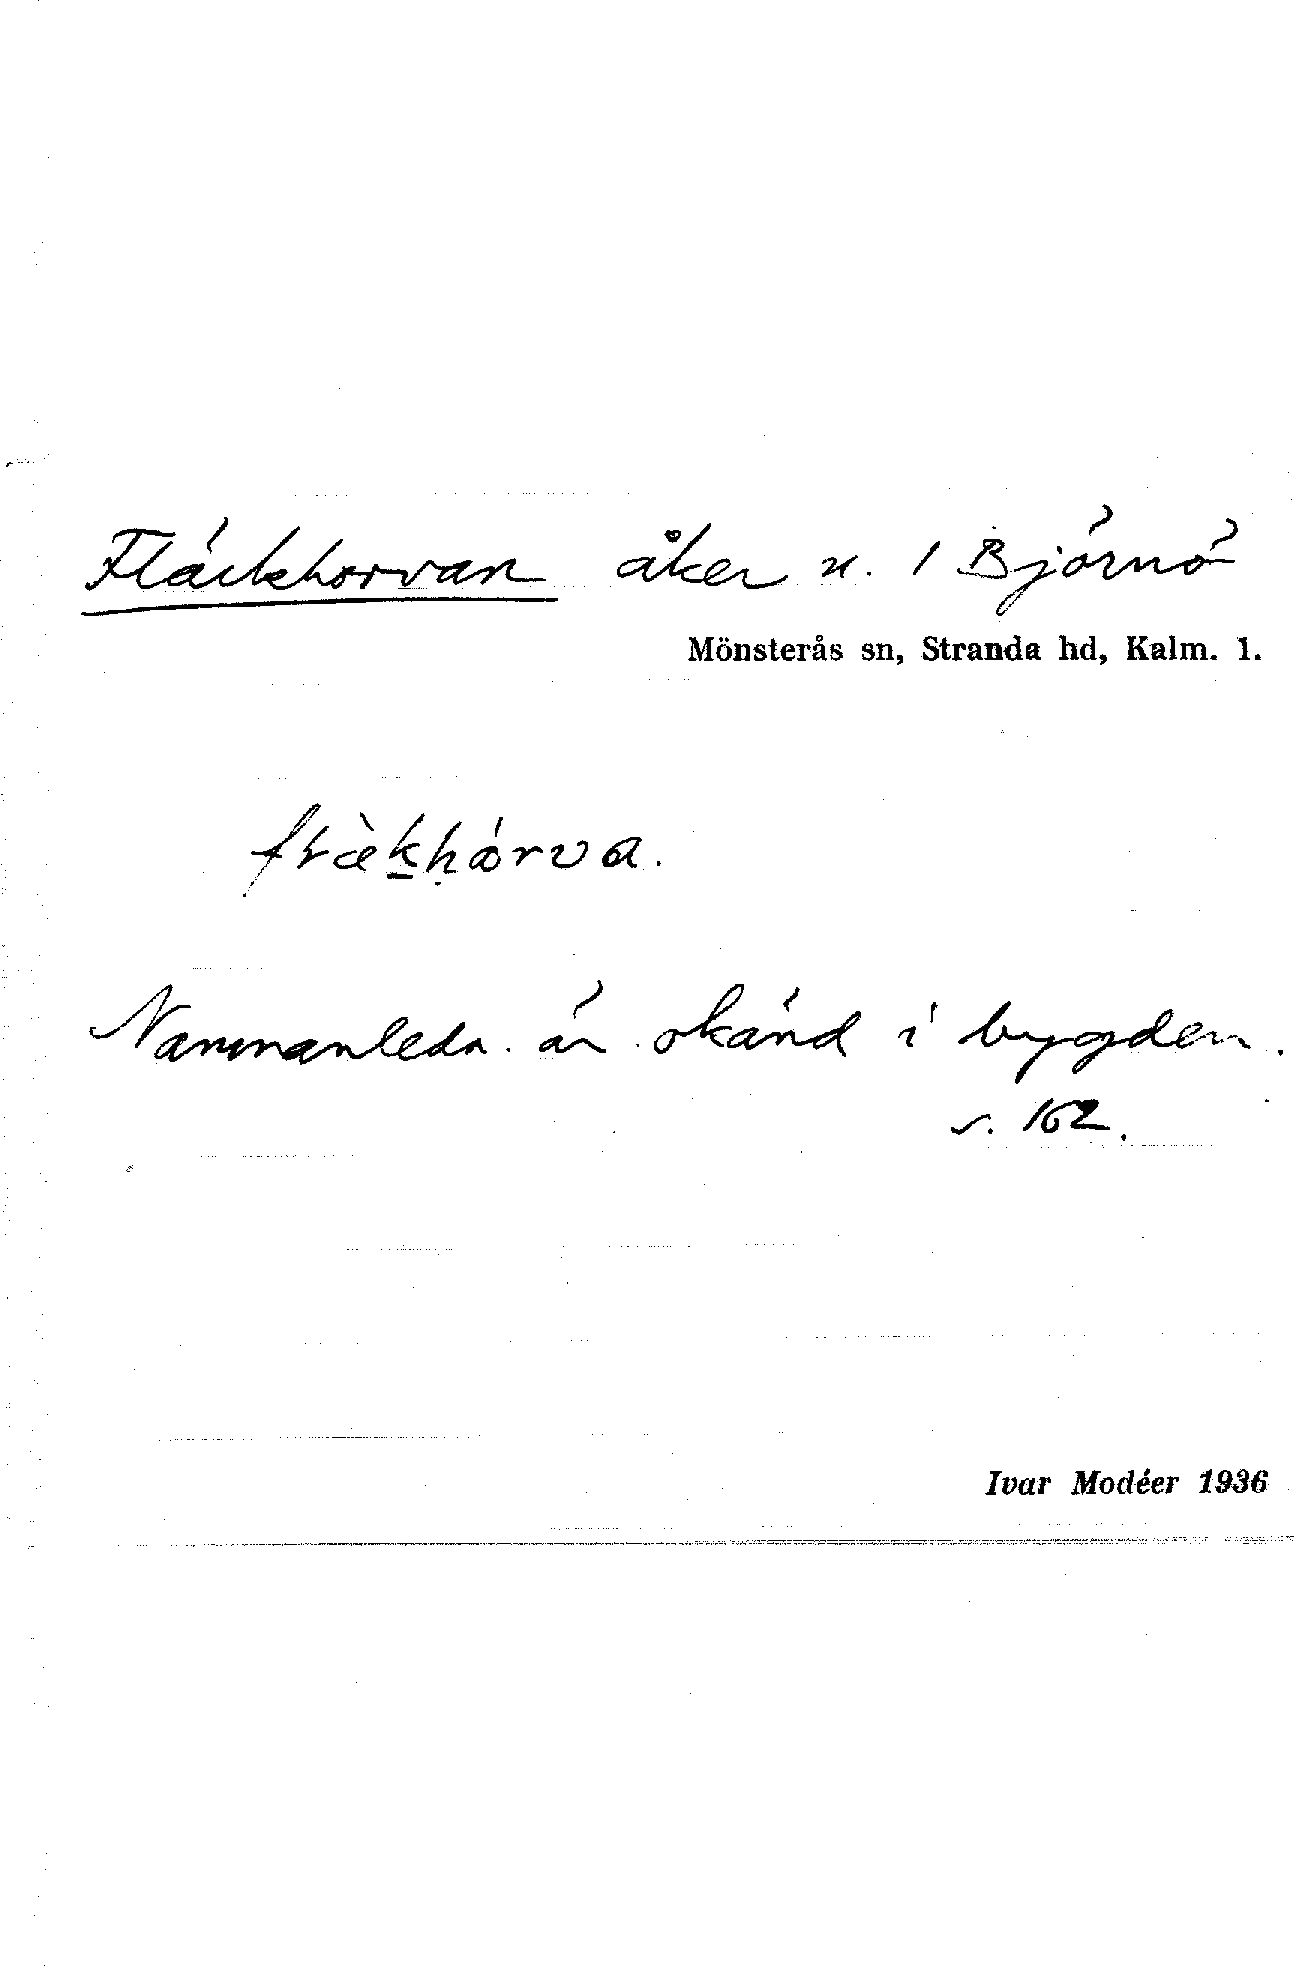 Fläckhorvan åker u. 1 Björnö
Mönsterås sn, Stranda hd, Kalm. 1.
Namnanledn. är okänd i bygden.
s. 162.
Ivar Modéer 1936